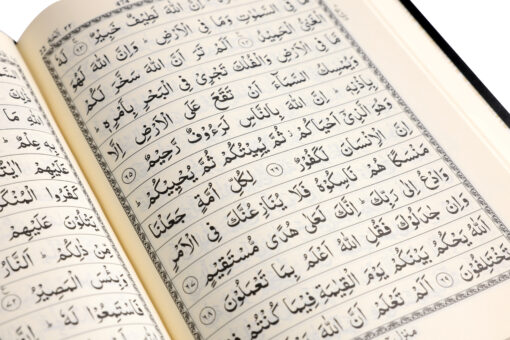 لَطِيْفٌ خَبِيْرٌ ۝٦٣
مَا فِي السَّمٰوٰتِ وَمَا فِي الْاَرْضِ ؕ وَاِنَّ اللّٰهَ لَهُوَ
الْغَنِيُّ الْحَمِيْدُ ۝٦٤ اَلَمْ تَرَ اَنَّ اللّٰهَ سَخَّرَ لَكُمْ
مَّا فِي الْاَرْضِ وَالْفُلْكَ تَجْرِيْ فِي الْبَحْرِ بِاَمْرِهٖ ؕ
وَيُمْسِكُ السَّمَآءَ اَنْ تَقَعَ عَلَى الْاَرْضِ اِلَّا
بِاِذْنِهٖ ؕ اِنَّ اللّٰهَ بِالنَّاسِ لَرَءُوْفٌ رَّحِيْمٌ ۝٦٥
وَهُوَ الَّذِيْۤ اَحْيَاكُمْ ؗ ثُمَّ يُمِيْتُكُمْ ثُمَّ يُحْيِيْكُمْ ؕ
اِنَّ الْاِنْسَانَ لَكَفُوْرٌ ۝٦٦ لِكُلِّ اُمَّةٍ جَعَلْنَا
مَنْسَكًا هُمْ نَاسِكُوْهُ فَلَا يُنَازِعُنَّكَ فِي الْاَمْرِ
وَادْعُ اِلٰى رَبِّكَ ؕ اِنَّكَ لَعَلٰى هُدًى مُّسْتَقِيْمٍ ۝٦٧
وَاِنْ جَادَلُوْكَ فَقُلِ اللّٰهُ اَعْلَمُ بِمَا تَعْمَلُوْنَ ۝٦٨
اَللّٰهُ يَحْكُمُ بَيْنَكُمْ يَوْمَ الْقِيٰمَةِ فِيْمَا كُنْتُمْ
تَخْتَلِفُوْنَ ۝٦٩ اَلَمْ تَعْلَمْ اَنَّ اللّٰهَ
اللّٰهِ مَا
بِهٖ عِلْمٌ ؕ
عَلَيْهِمْ اٰيٰتُنَا
كَفَرُوا الْمُنْكَرَ
يَتْلُوْنَ عَلَيْهِمْ
مِّنْ ذٰلِكُمْ ؕ اَلنَّارُ ؕ
وَبِئْسَ الْمَصِيْرُ ۝٧٢
فَاسْتَمِعُوْا لَهٗ ؕ